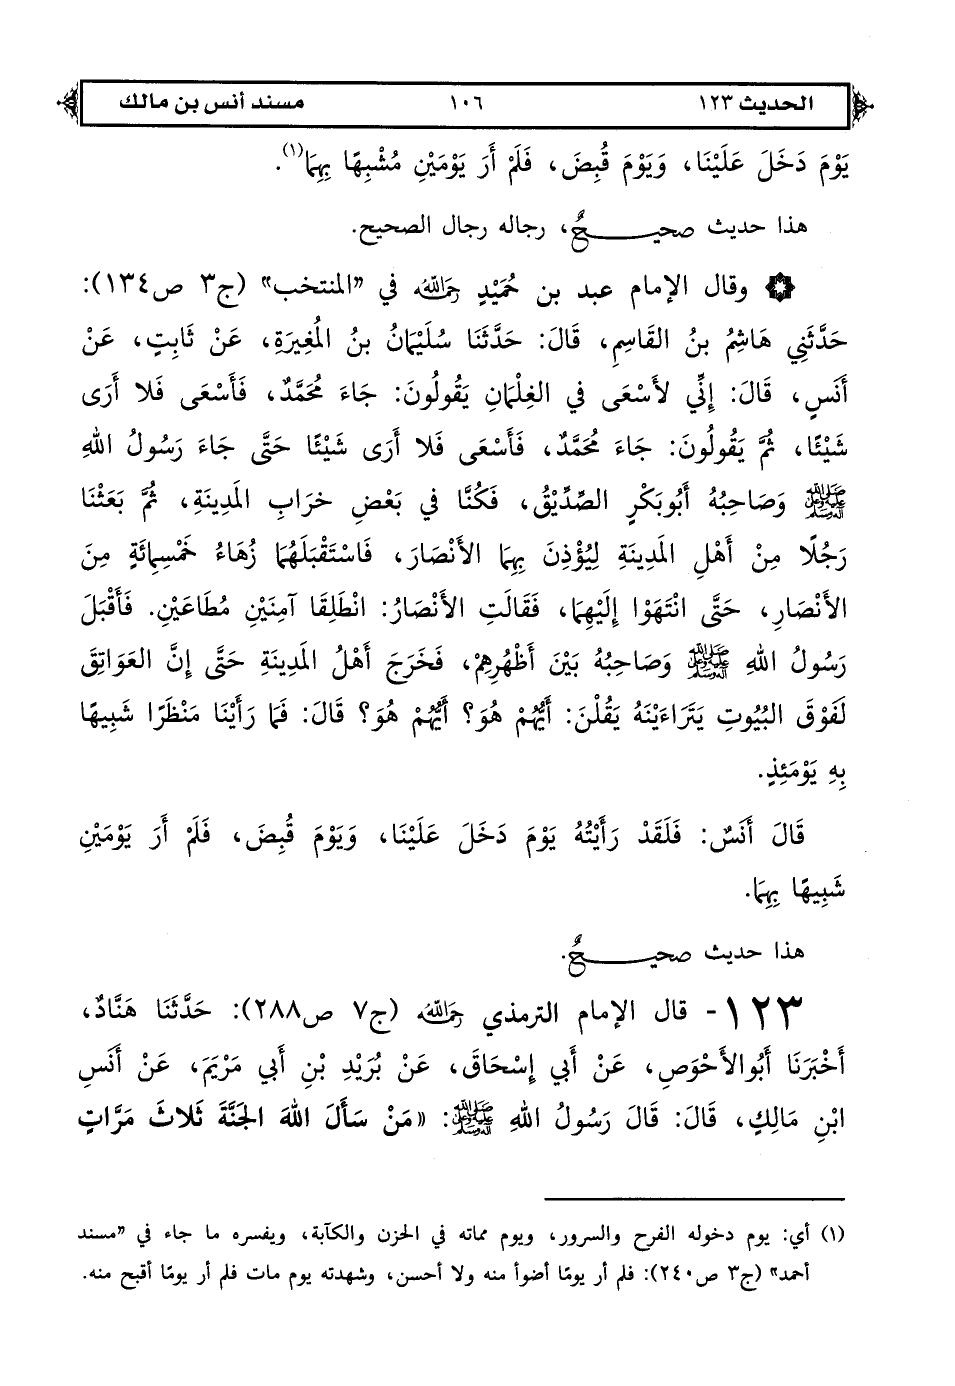 الحديث ١٢٣ ١٠٦ مسند أنس بن مالك
يَوْمَ دَخَلَ عَلَيْنَا، وَيَوْمَ قُبِضَ، فَلَمْ أَرَ يَوْمَيْنِ مُشْبِهًا بِهِمَا(١).
هذا حديث صحيـــــحٌ، رجاله رجال الصحيح.
۞ وقال الإمام عبد بن حُمَيْدٍ رَحِمَهُ اللهُ في «المنتخب» (ج٣ ص١٣٤):
حَدَّثَنِي هَاشِمُ بنُ القَاسِمِ، قَالَ: حَدَّثَنَا سُلَيْمَانُ بنُ المُغِيرَةِ، عَنْ ثَابِتٍ، عَنْ
أَنَسٍ، قَالَ: إِنِّي لأَسْعَى في الغِلْمَانِ يَقُولُونَ: جَاءَ مُحَمَّدٌ، فَأَسْعَى فَلا أَرَى
شَيْئًا، ثُمَّ يَقُولُونَ: جَاءَ مُحَمَّدٌ، فَأَسْعَى فَلا أَرَى شَيْئًا حَتَّى جَاءَ رَسُولُ اللهِ
ﷺ وَصَاحِبُهُ أَبُوبَكْرٍ الصِّدِّيْقُ، فَكُنَّا في بَعْضِ خرَابِ المَدِينَةِ، ثُمَّ بَعَثْنَا
رَجُلًا مِنْ أَهْلِ المَدِينَةِ لِيُؤْذِنَ بِهِمَا الأَنْصَارَ، فَاسْتَقْبَلَهُمَا زُهَاءُ خَمْسِمِائَةٍ مِنَ
الأَنْصَارِ، حَتَّى انْتَهَوْا إِلَيْهِمَا، فَقَالَتِ الأَنْصَارُ: انْطَلِقَا آمِنَيْنِ مُطَاعَيْنِ. فَأَقْبَلَ
رَسُولُ اللهِ ﷺ وَصَاحِبُهُ بَيْنَ أَظْهُرِهِمْ، فَخَرَجَ أَهْلُ المَدِينَةِ حَتَّى إِنَّ العَوَاتِقَ
لَفَوْقَ البُيُوتِ يَتَرَاءَيْنَهُ يَقُلْنَ: أَيُّهُمْ هُوَ؟ أَيُّهُمْ هُوَ؟ قَالَ: فَمَا رَأَيْنَا مَنْظَرًا شَبِيهًا
بِهِ يَوْمَئِذٍ.
قَالَ أَنَسٌ: فَلَقَدْ رَأَيْتُهُ يَوْمَ دَخَلَ عَلَيْنَا، وَيَوْمَ قُبِضَ، فَلَمْ أَرَ يَوْمَيْنِ
شَبِيهًا بِهِمَا.
هذا حديث صحيـــــحٌ.
١٢٣- قال الإمام الترمذي رَحِمَهُ اللهُ (ج٧ ص٢٨٨): حَدَّثَنَا هَنَّادٌ،
أَخْبَرَنَا أَبُوالأَحْوَصِ، عَنْ أَبي إِسْحَاقَ، عَنْ بُرَيْدِ بْنِ أَبي مَرْيَمَ، عَنْ أَنَسِ
ابْنِ مَالِكٍ، قَالَ: قَالَ رَسُولُ اللهِ ﷺ: «مَنْ سَأَلَ اللهَ الجَنَّةَ ثَلاثَ مَرَّاتٍ
(١) أي: يوم دخوله الفرح والسرور، ويوم مماته في الحزن والكآبة، ويفسره ما جاء في «مسند
أحمد» (ج٣ ص٢٤٠): فلم أر يومًا أضوأ منه ولا أحسن، وشهدته يوم مات فلم أر يومًا أقبح منه.